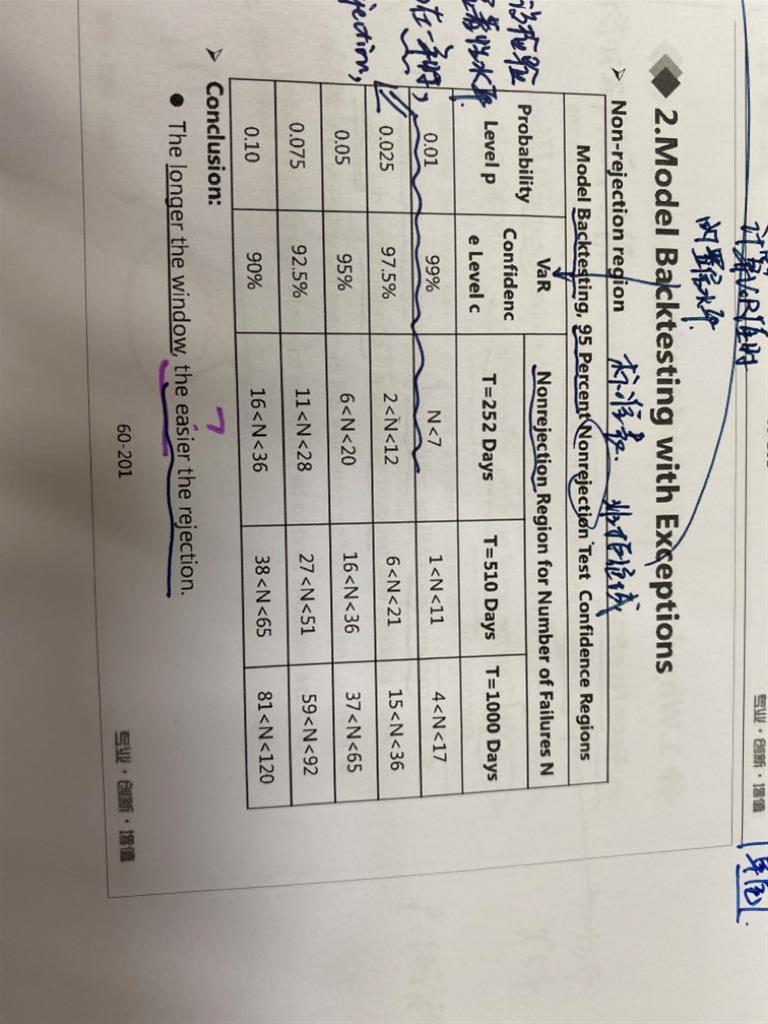 计算VaR值时
的置信水平
单尾
专业·创新·增值
2.Model Backtesting with Exceptions
Non-rejection region
标准表. 非拒绝域
Model Backtesting, 95 Percent Nonrejection Test Confidence Regions
Probability Level p
VaR Confidenc e Level c
Nonrejection Region for Number of Failures N
T=252 Days T=510 Days T=1000 Days
0.01 99% N<7 1<N<11 4<N<17
0.025 97.5% 2<N<12 6<N<21 15<N<36
0.05 95% 6<N<20 16<N<36 37<N<65
0.075 92.5% 11<N<28 27<N<51 59<N<92
0.10 90% 16<N<36 38<N<65 81<N<120
Conclusion:
The longer the window, the easier the rejection.
60-201
专业·创新·增值